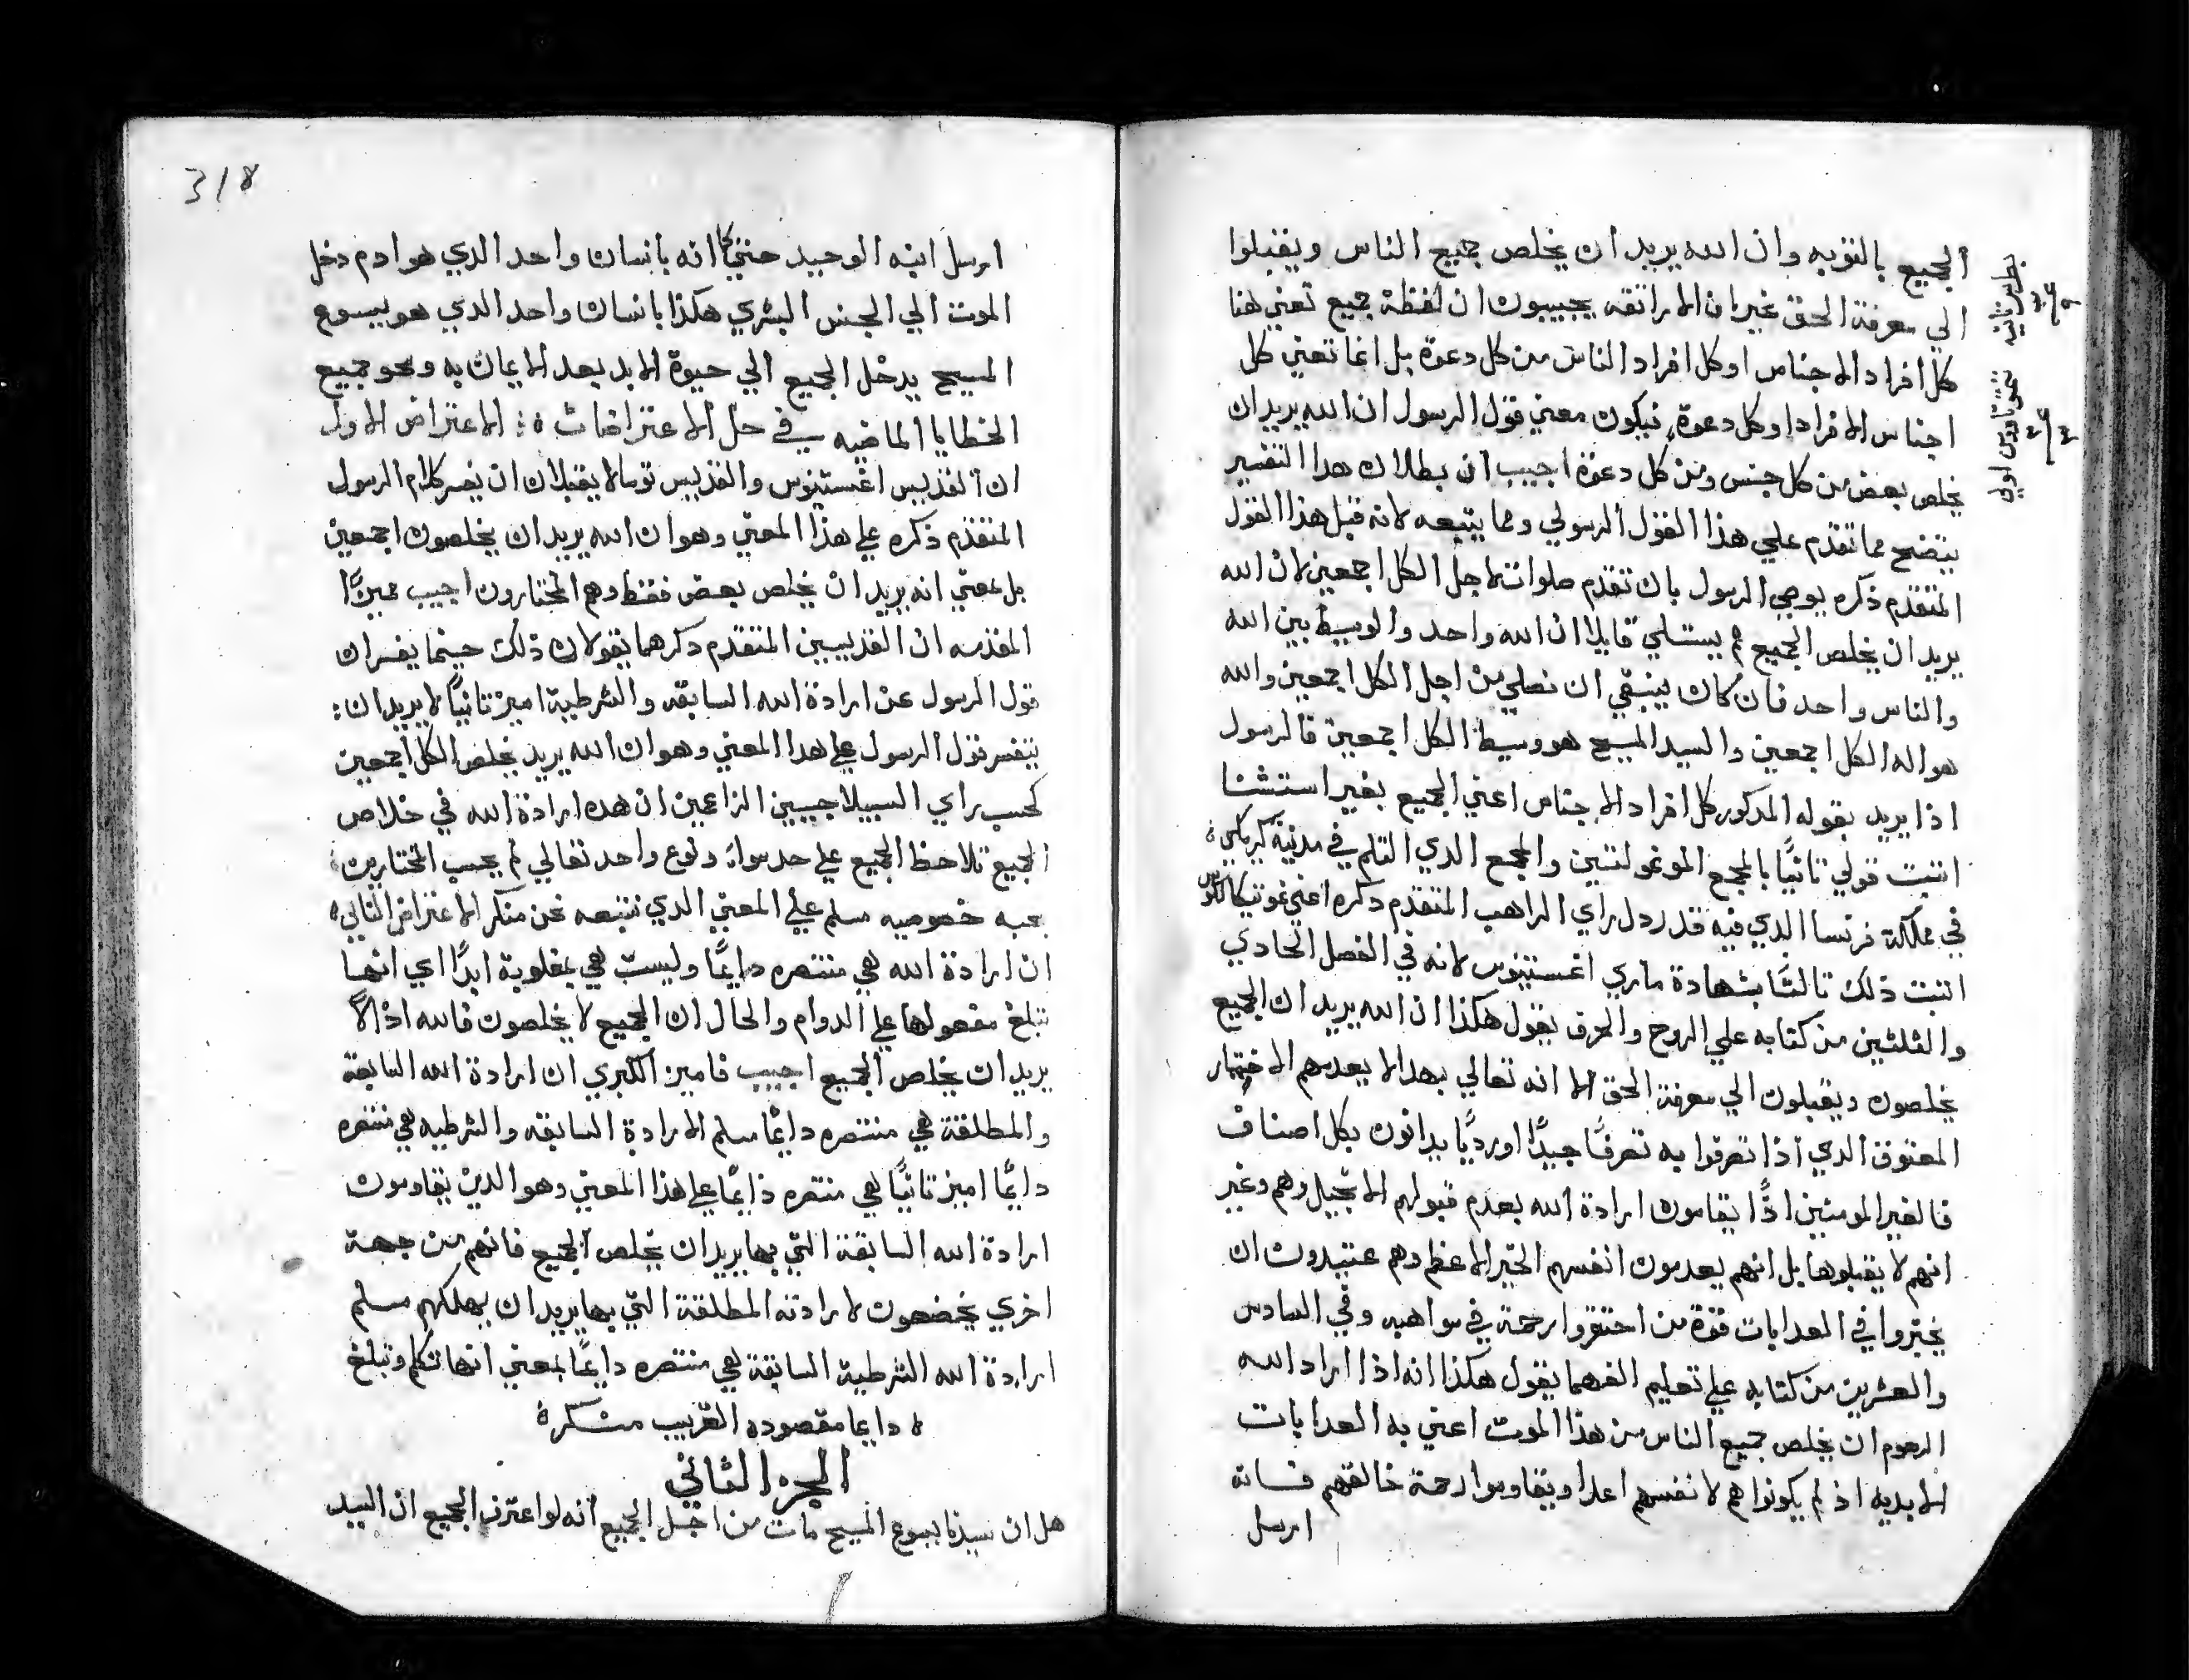 الجميع بالتوبه وان الله يريد ان يخلص جميع الناس ويقبلوا
الي معرفة الحق غير ان الاراتقه يجيبون ان لفظة جميع تعني هنا
كل افراد الاجناس او كل افراد الناس من كل دعوة بل انما تعني كل
اجناس الافراد او كل دعوة فيكون معني قول الرسول ان الله يريد ان
يخلص بعض من كل جنس ومن كل دعوة اجيب ان بطلان هدا التفسير
يتضح مما تقدم علي هذا القول الرسولي ومما يتبعه لانه قبل هذا القول
المتقدم ذكره يوصي الرسول بان تقدم صلوات لاجل الكل اجمعين لان الله
يريد ان يخلص الجميع ثم يستلي قايلا ان الله واحد والوسيط بين الله
والناس واحد فان كان ينبغي ان نصلي من اجل الكل اجمعين والله
هو اله الكل اجمعين والسيد المسيح هو وسيط الكل اجمعين فالرسول
اذا يريد بقوله المدكور كل افراد الاجناس اعني الجميع بغير استثنا
اتبت قولي تانيًا بالمجمع الموغولنتين والمجمع الدي التلم في مدينة كيرياكي
في مملكة فرنسا الدي فيه قد ردل راي الراهب المتقدم دكره اعني غوتيكالكوس
اتبت ذلك تالتًا بشهادة ماري اغستينوس لانه في الفصل الحادي
والثلثين من كتابه علي الروح والحرف يقول هكذا ان الله يريد ان الجميع
يخلصون ويقبلون الي معرفة الحق الا انه تعالي بهدا لا يعدمهم الاختيار
المعتوق الدي اذا تصرفوا به تصرفًا جيدًا او رديًا يدانون بكل اصناف
فالغير المومنين اذًا يقامون ارادة الله بعدم قبولهم الانجيل وهم وغير
انهم لا يقبلوها بل انهم يعدمون انفسهم الخير الاعظم وهم عتيدون ان
يختبروا في العدابات قوة من احتقروا رحمة في مواهبه وفي السادس
والعشرين من كتابه علي تعليم الفهما يقول هكذا انه اذا اراد الله
الرحوم ان يخلص جميع الناس من هذا الموت اعني به العدابات
الابديه اذ لم يكونوا هم لانفسهم اعدا ويقاوموا رحمة خالقهم فانه
ارسل
بطرس ثانيه
تيموتاوس اولي
318
ارسل ابنه الوحيد حتي كما انه بانسان واحد الدي هو ادم دخل
الموت الي الجنس البشري هكذا بانسان واحد الدي هو يسوع
المسيح يدخل الجميع الي حيوة الابد بعد الايمان به ومحو جميع
الخطايا الماضيه في حل الاعتراضات الاعتراض الاول
ان القديس اغستينوس والقديس توما لا يقبلان ان يفسر كلام الرسول
المتقدم ذكره علي هذا المعني وهو ان الله يريد ان يخلصون اجمعين
بل بمعني انه يريد ان يخلص بعض فقط وهم المختارون اجيب مميزًا
المقدمه ان القديسين المتقدم دكرهما يقولان ذلك حينما يفسران
قول الرسول عن ارادة الله السابقه والشرطية اميز تانيًا لا يريدان
يتفسر قول الرسول علي هدا المعني وهو ان الله يريد يخلص الكل اجمعين
كحسب راي البيلاجيين الزاعمين ان هده ارادة الله في خلاص
الجميع تلاحظ الجميع علي حد سواء ونوع واحد تعالي لم يحب المختارين
بمحبه خصوصيه مسلم علي المعني الدي نتبعه نحن منكر الاعتراض التاني
ان ارادة الله هي منتصره دايمًا وليست هي بمغلوبة ابدًا اي انها
تبلغ مفعولها علي الدوام والحال ان الجميع لا يخلصون فالله اذًا لا
يريد ان يخلص الجميع اجيب فاميز الكبري ان ارادة الله السابقة
والمطلقة هي منتصره دايمًا مسلم الارادة السابقه والشرطيه هي منتصره
دايمًا اميز تانيًا هي منتصره دايمًا علي هذا المعني وهو الدين يقاومون
ارادة الله السابقة التي بها يريد ان يخلص الجميع فانهم من جهة
اخري يخضعون لارادته المطلقة التي بها يريد ان يهلكهم مسلم
ارادة الله الشرطية السابقة هي منتصره دايمًا بمعني انها تكلم وتبلغ
دايما مقصوده القريب منكره
الجزء الثاني
هل ان سيدنا يسوع المسيح مات من اجل الجميع انه لو اعترف الجميع ان السيد